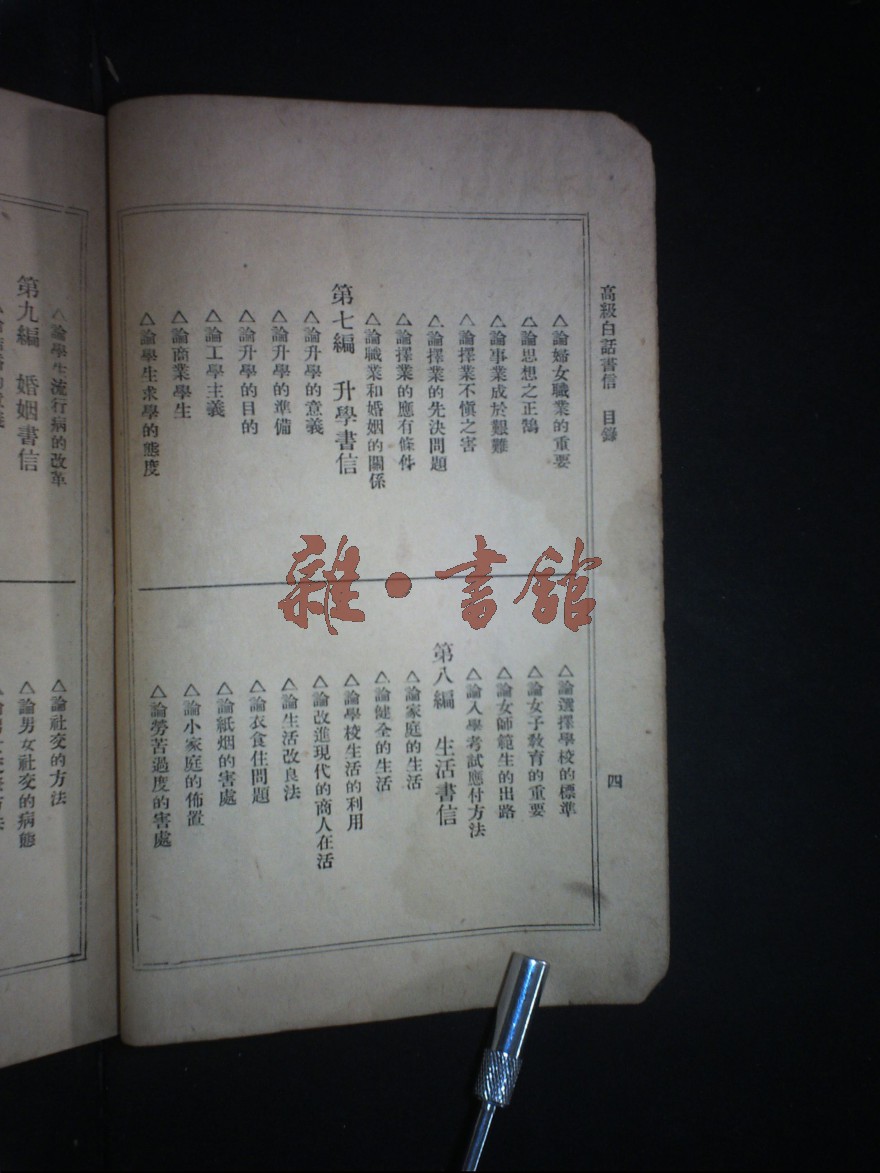 高級白話書信　目錄
四
△論婦女職業的重要
△論思想之正鵠
△論事業成於艱難
△論擇業不愼之害
△論擇業的先決問題
△論擇業的應有條件
△論職業和婚姻的關係
第七編　升學書信
△論升學的意義
△論升學的準備
△論升學的目的
△論工學主義
△論商業學生
△論學生求學的態度
△論選擇學校的標準
△論女子敎育的重要
△論女師範生的出路
△論入學考試應付方法
第八編　生活書信
△論家庭的生活
△論健全的生活
△論學校生活的利用
△論改進現代的商人在活
△論生活改良法
△論衣食住問題
△論紙烟的害處
△論小家庭的佈置
△論勞苦過度的害處
△論學生流行病的改革
第九編　婚姻書信
△論社交的方法
△論男女社交的病態
雜・書館